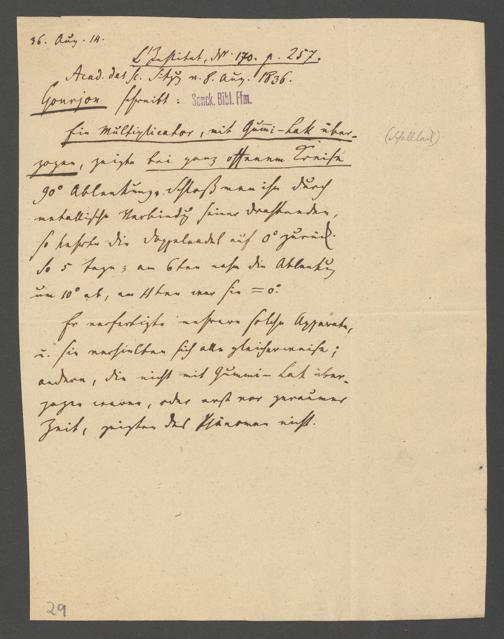 36. Aug. 14.
L'Institut, No. 170. p. 257.
Acad. des sc. Sitzg v. 8. Aug. 1836.
Gourjon schreibt:
Senck. Bibl. Ffm.
Ein Multiplicator, mit Gummi-Lak über-
(Schellack)
zogen, zeigte bei ganz offenem Kreise
90° Ablenkung. Schloß man ihn durch
metallische Verbindg seiner Drathenden,
so kehrte die Doppelnadel auf 0° zurück.
So 5 Tage; am 6ten nahm die Ablenkg
um 10° ab, am 11ten war sie = 0.
Er verfertigte mehrere solche Apparate,
u. sie verhielten sich alle gleicherweise;
andere, die nicht mit Gummi-Lak über-
zogen waren, oder erst vor geraumer
Zeit, zeigten das Phänomen nicht.
29